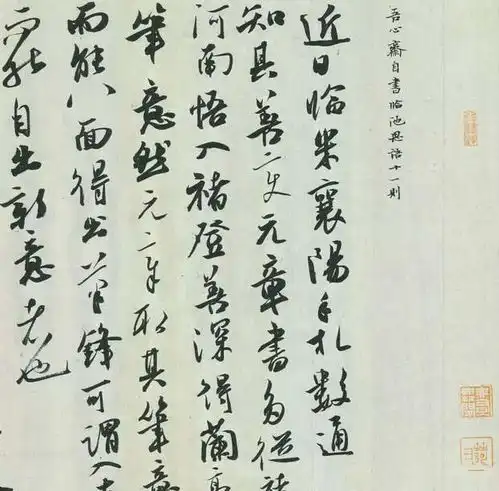 吾心齋自書臨池異語十一則
近日臨米襄陽手札數通
知其善變元章書多從褚
河南悟入褚登善深得蘭亭
筆意然元章取其筆意
而能八面得出筆鋒可謂入古
而能自出新意者也